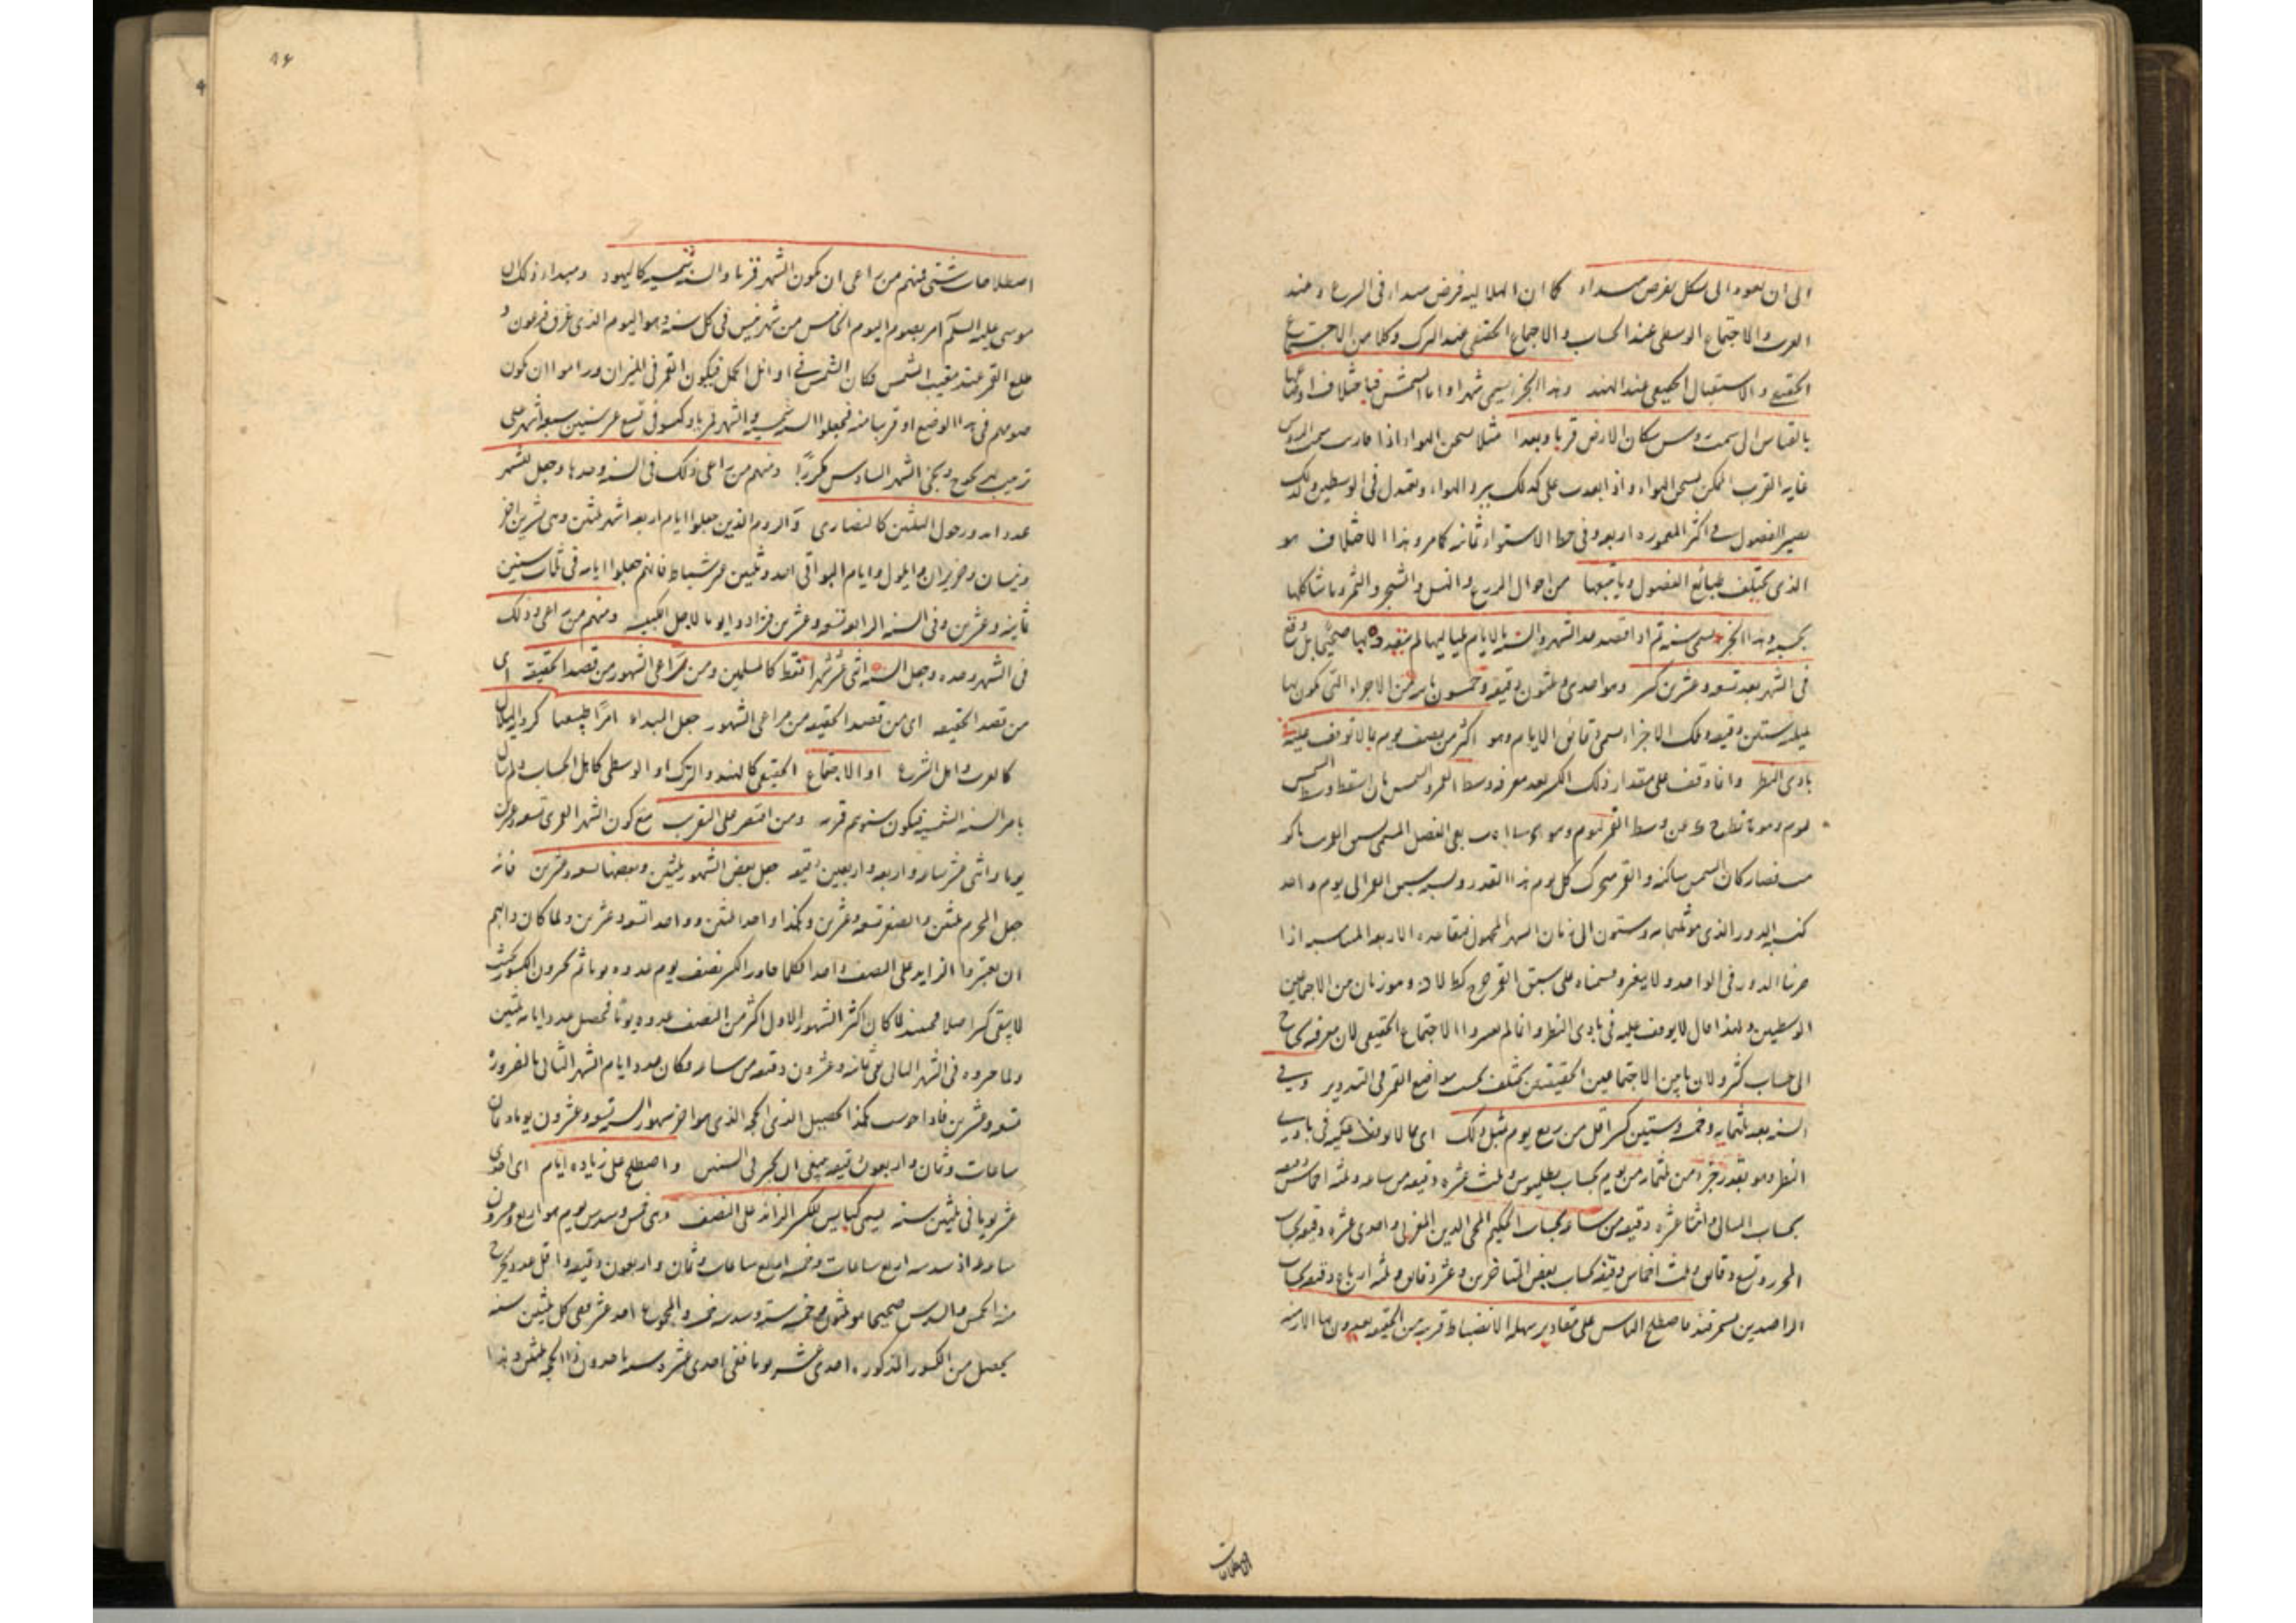 الى ان يعود الى شكل يفرض مبداء كما ان الهلالية فرض مبداء فى الشرع وعند
العرب والاجتماع الوسطى عند الحساب والاجتماع الحقيقى عند الترك وكلا من الاجتماع
الحقيقى والاستقبال الحقيقى عند الهند وهذا الجزء يسمى شهرا واما الشمس فباختلاف اوضاعها
بالقياس الى سمت رؤس سكان الارض قربا وبعدا مثلا يسخن الهواء اذا قاربت سمت الرؤس
غاية القرب الممكن يسخن الهواء واذا بعدت على كذلك يبرد الهواء ويعتدل فى الوسطين ولذلك
يصير الفصول فى اكثر المعمورة اربعة وفى خط الاستواء ثمانية كما مر وهذا الاختلاف هو
الذى يختلف طبائع الفصول وما يتبعها من احوال الزرع والنسل والشجر والثمر وما شاكلها
بحسبه وهذا الجزء يسمى سنة ثم اذا قصد عد الشهر والسنة بالايام بلياليها لم بها صحيحا بل وقع
فى الشهر بعد تسعة وعشرين كسر وهو احدى وثلثون دقيقة وخمسون ثانية من الاجزاء التى يكون بها
ليلة ستين دقيقة وتلك الاجزاء يسمى دقائق الايام وهو اكثر من نصف يوم بما لا توقف عليه
بادى النظر وانما وقف على مقدار ذلك الكسر بعد معرفة وسط القمر والشمس بان اسقط وسط الشمس
ليوم وهو عن وسط القمر ليوم وهو بقى الفضل
فصار كان الشمس ساكنة والقمر متحرك كل يوم هذا القدر ونسبة سبق القمر الى يوم واحد
كنسبة الدور الذى هو ثلثمائة وستون الى زمان الشهر المجهول فبقاعدة الاربعة المتناسبة اذا
ضربنا الدور فى الواحد ولا يتغير وقسمناه على سبق القمر خرج وهو زمان من الاجتماعين
الوسطين ولهذا قال لا يوقف عليه فى بادى النظر وانما لم يعتبروا الاجتماع الحقيقى لان معرفته يحتاج
الى حساب كثير ولان ما بين الاجتماعين الحقيقيين يختلف بحسب مواضع القمر فى التدوير وفى
السنة بعد ثلثمائة وخمسة وستين كسر اقل من ربع يوم بمثل ذلك اى مما لا يوقف عليه فى بادى
النظر وهو بقدر جزء من ثلثمائة من يوم بحساب بطليموس وثلث عشرة دقيقة من ساعة وثلثة اخماس دقيقة
بحساب البتانى واثنا عشرة دقيقة من ساعة بحساب الحكيم المحى الدين المغربى واحدى عشرة دقيقة بحساب
المحرر وتسع دقائق وثلث اخماس دقيقة بحساب بعض المتاخرين وعشر دقائق وثلثة ارباع دقيقة بحساب
الراصدين بسمرقند فاصطلح الناس على مقادير سهلة الانضباط قريبة من الحقيقة يعبرون بها الازمنة
اصطلاحات
٨٤
اصطلاحات شتى فمنهم من راعى ان يكون الشهر قمريا والسنة شمسية كاليهود ومبداء ذلك ان
موسى عليه السلام امر بصوم اليوم الخامس من شهر نيسن فى كل سنة وهو اليوم الذى غرق فرعون و
طلع القمر عند مغيب الشمس وكان الشمس فى اوائل الحمل فيكون القمر فى الميزان وراموا ان يكون
صومهم فى هذا الوضع او قريبا منه فجعلوا السنة شمسية والشهر قمريا وكبسوا فى تسع عشر سنين سبعة اشهر على
ترتيب ويجئ الشهر السادس مكررا ومنهم من راعى ذلك فى السنة وحدها وجعل للشهر
عددا يدور حول الثلثين كالنصارى والروم الذين جعلوا ايام اربعة اشهر ثلثين وهى تشرين الاخر
ونيسان وحزيران وايلول وايام البواقى احد وثلثين غير شباط فانهم جعلوا ايامه فى ثلاث سنين
ثمانية وعشرين وفى السنة الرابعة تسعة وعشرين فزادوا يوما لاجل الكبيسة ومنهم من راعى ذلك
فى الشهر وحده وجعل السنة اثنى عشر شهرا فقط كالمسلمين ومن راعى الشهور من قصد الحقيقة اى
من قصد الحقيقة اى من قصد الحقيقة من مراعى الشهور جعل المبداء امرا طبيعيا كرؤية الهلال
كالعرب واهل الشرع او الاجتماع الحقيقى كالهند والترك او الوسطى كاهل الحساب ولم يبال
بامر السنة الشمسية فيكون سنوهم قمرية ومن اقتصر على التقريب مع كون الشهر القمرى تسعة وعشرين
يوما واثنى عشر ساعة واربعة واربعين دقيقة جعل بعض الشهور ثلثين وبعضها تسعة وعشرين فانه
جعل المحرم ثلثين والصفر تسعة وعشرين وهكذا واحدا ثلثين وواحدا تسعة وعشرين ولما كان دابهم
ان يعتبروا الزايد على النصف واحدا فكلما جاوز الكسر نصف يوم عدوه يوما ثم يجرون الكسور بحيث
لا يبقى كسر اصلا فحينئذ لما كان اكثر الشهور الاول اكثر من النصف عدوه يوما فحصل عدد ايامه ثلثين
ولما جروه فى الشهر الثانى بقى ثمانية وعشرون دقيقة من ساعة وكان عدد ايام الشهر الثانى بالضرورة
تسعة وعشرين فاذا حوسب هكذا الحصل الذى الحجة الذى هو اخر شهور السنة تسعة وعشرون يوما وثمان
ساعات وثمان واربعون دقيقة ينبغى ان يجبر فى السنين واصطلح على زيادة ايام اى احدى
عشر يوما فى ثلثين سنة يسمى كبايس للكسر الزائد على النصف وهى خمس وسدس يوم هو اربع وعشرون
ساعة اذ سدسه اربع ساعات وخمسه اربع ساعات وثمان واربعون دقيقة واقل عدد يخرج
منه الخمس والسدس صحيحا هو ثلثون وخمسه ستة وسدسه خمسة والمجموع احد عشر ففى كل ثلثين سنة
يحصل من الكسور المذكورة احدى عشر يوما ففى احدى عشرة سنة ياخذون ذا الحجة ثلثين وهذا